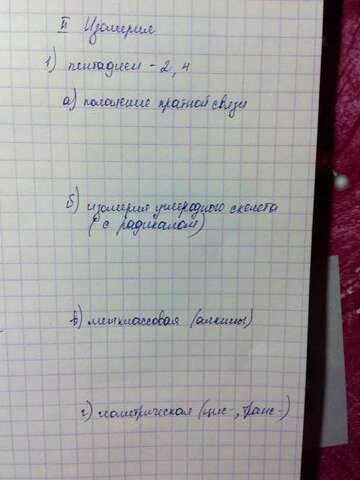 II Изомерия
1) пентадиен - 2, 4
а) положение кратной связи
б) изомерия углеродного скелета
(с радикалом)
в) межклассовая (алкины)
г) геометрическая (цис-, транс-)